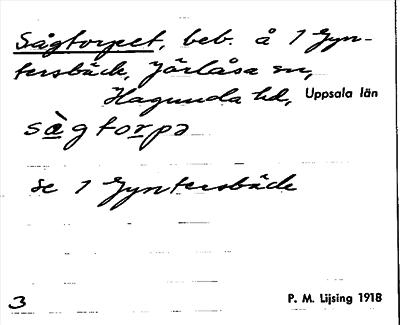 Sågtorpet, beb. å 1 Gyn-
tersbäck, Järlåsa sn,
Hagunda hd, Uppsala län
sàgtorpə
se 1 Gyntersbäck
3 P. M. Lijsing 1918